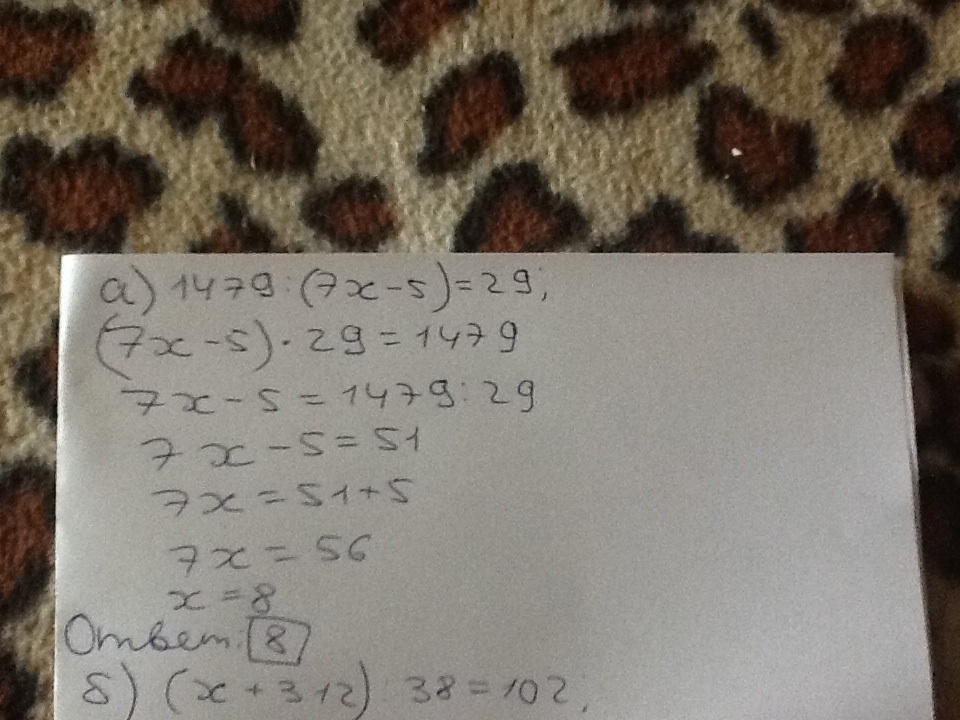 а) 1479:(7x-5)=29;
(7x-5)·29=1479
7x-5=1479:29
7x-5=51
7x=51+5
7x=56
x=8
Ответ: 8
б) (x+312):38=102;